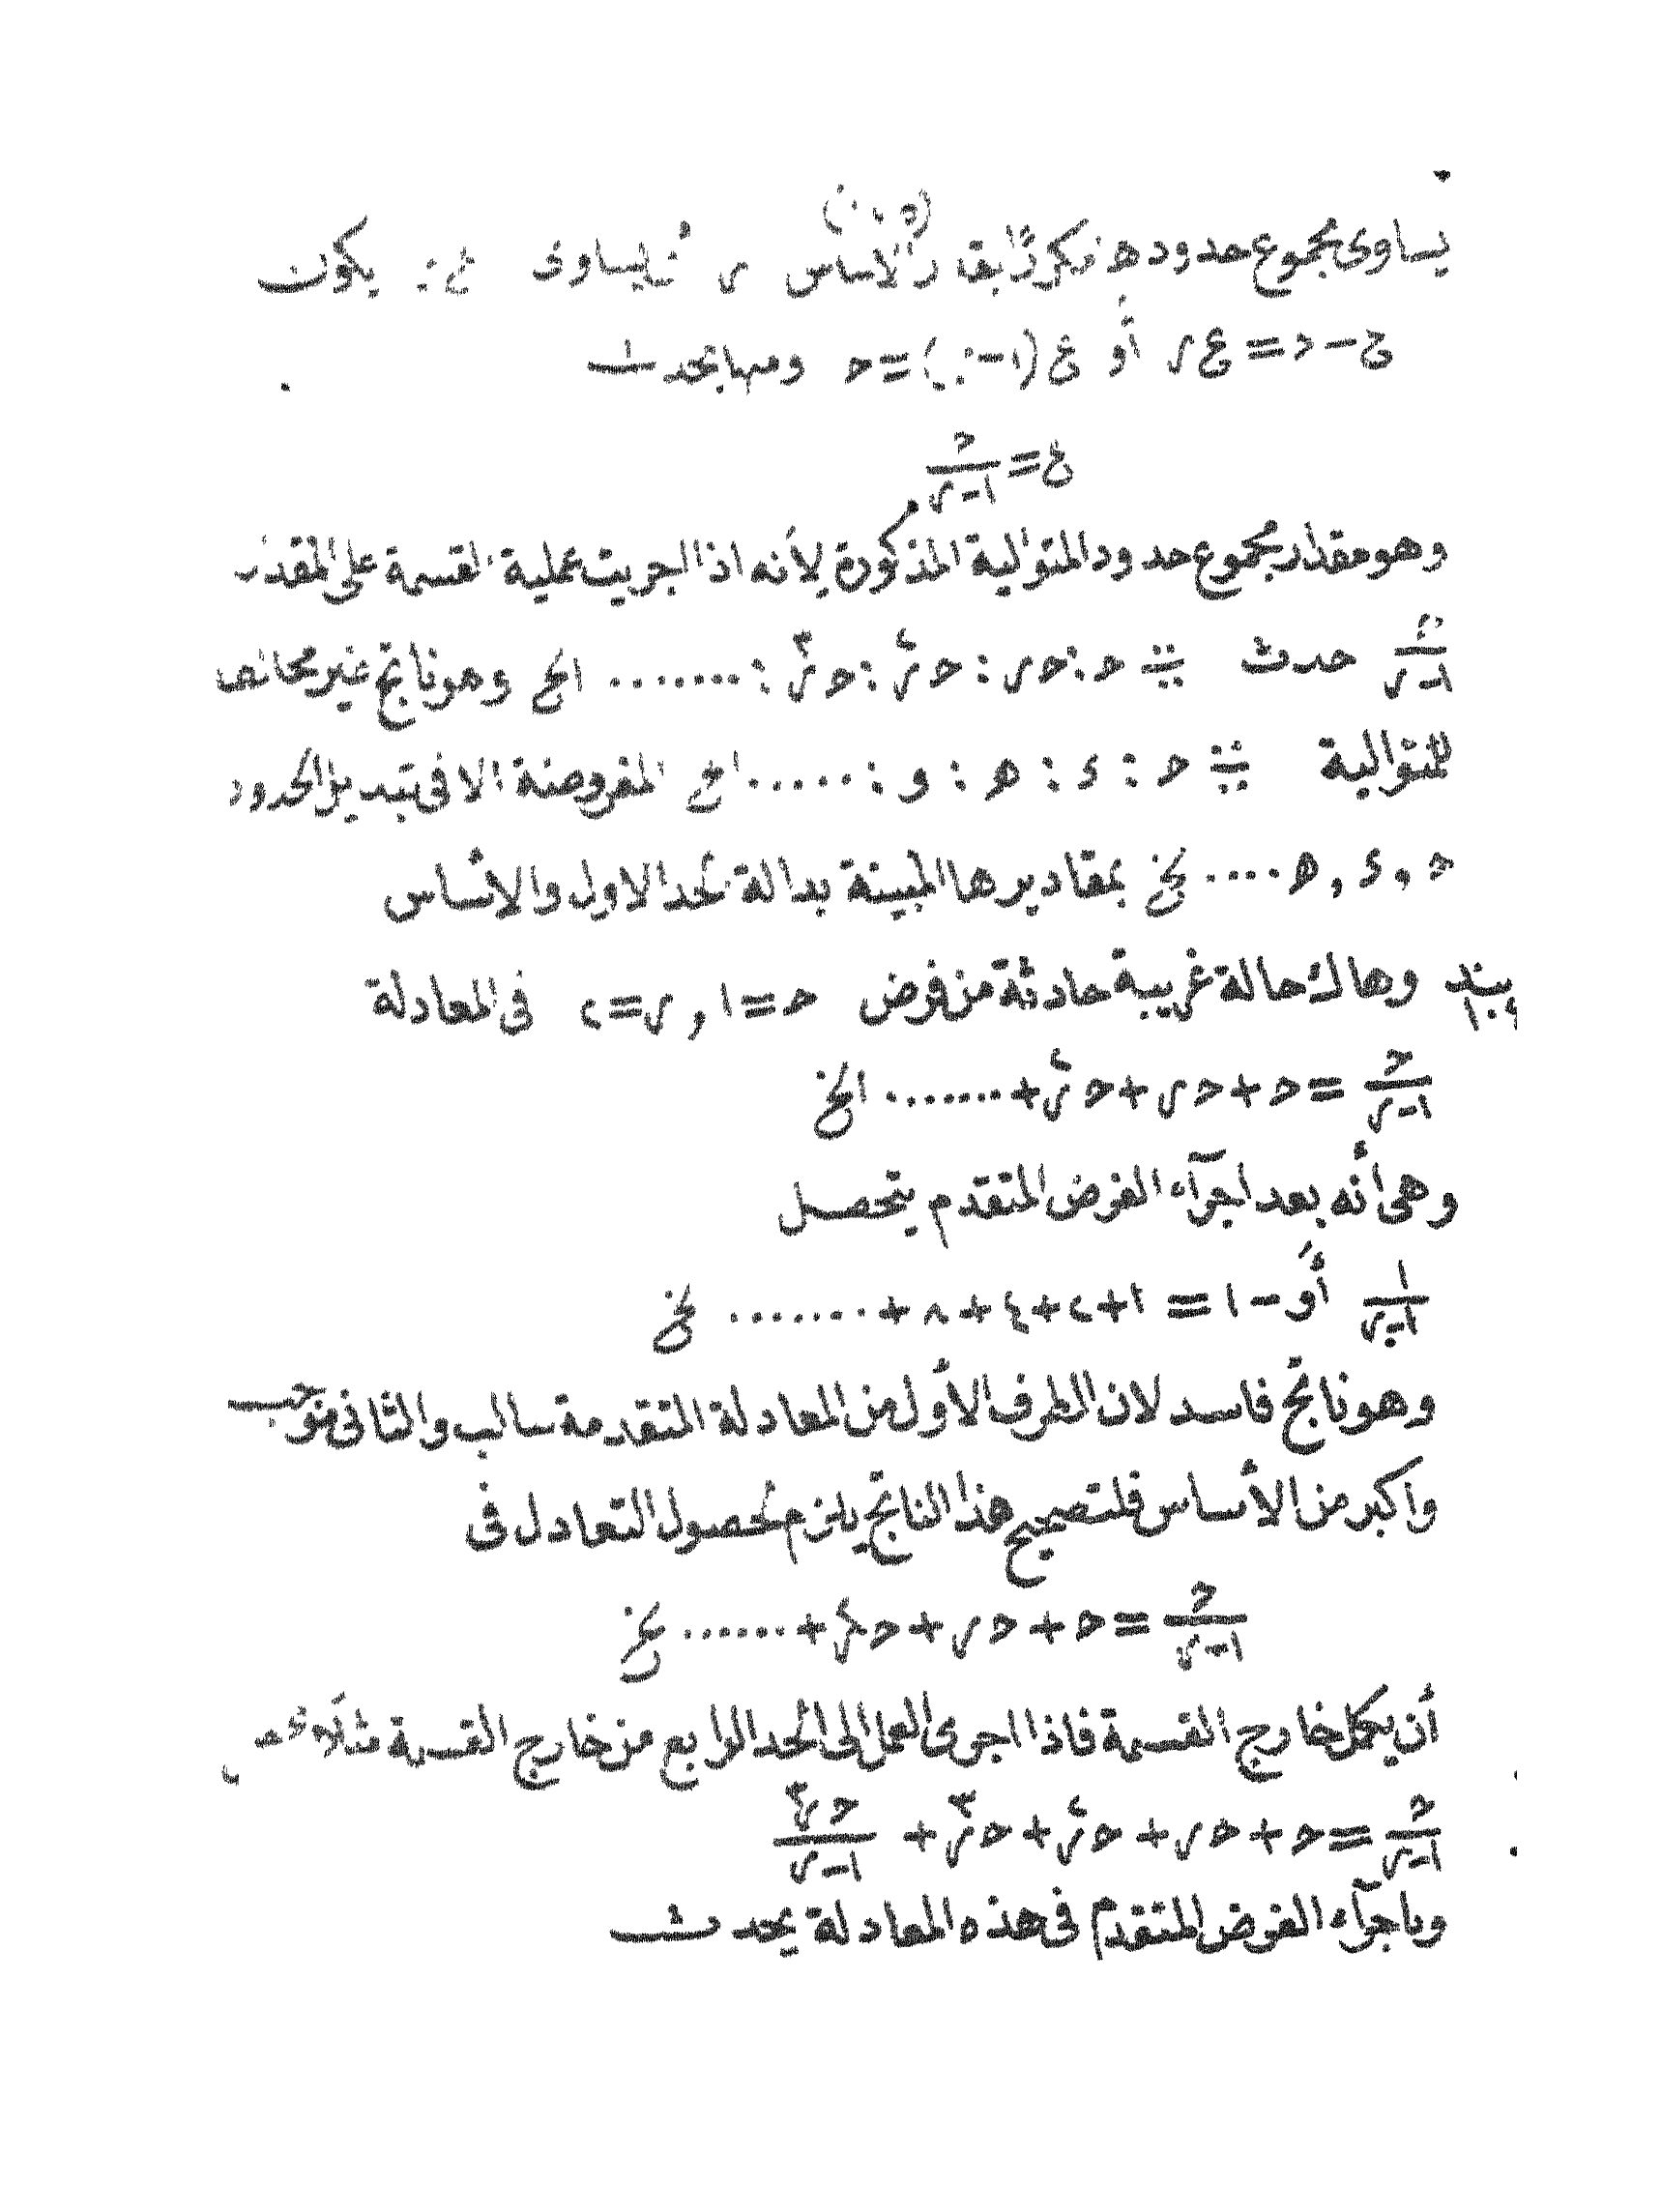 يساوى مجموع حدوده مكررًا بقدر الاساس ر أى يساوى ع ر يكون
ع - د = ع ر أو ع (١ - ر) = د ومنها يحدث
ع = د/(١-ر)
وهو مقدار مجموع حدود المتوالية المذكورة لأنه اذا اجريت عملية القسمة على المقدر
د/(١-ر) حدث ∺ د : د ر : د ر٢ : د ر٣ : ....... الخ وهو ناتج غير مخالف
للمتوالية ∺ د : ء : ه : و : ...... الخ المفروضة الا فى تبديل الحدود
د , ء , ه .... الخ بمقاديرها المبينة بدالة الحد الاول والاساس
بند وهاك حالة غريبة حادثة من فرض د = ١ , ر = ٢ فى المعادلة
د/(١-ر) = د + د ر + د ر٢ + ....... الخ
وهى أنه بعد اجرآء الفرض المتقدم يتحصل
١/(١-٢) أو - ١ = ١ + ٢ + ٤ + ٨ + ....... الخ
وهو ناتج فاسد لان الطرف الأول من المعادلة المتقدمة سالب والثانى موجب
واكبر من الأساس فلتصحيح هذا الناتج يلزم لحصول التعادل فى
د/(١-ر) = د + د ر + د ر٢ + ...... الخ
أن يكمل خارج القسمة فاذا اجرى العمل الى الحد الرابع من خارج القسمة مثلا
د/(١-ر) = د + د ر + د ر٢ + د ر٣ + د ر٤/(١-ر)
وباجرآء الفرض المتقدم فى هذه المعادلة يحدث